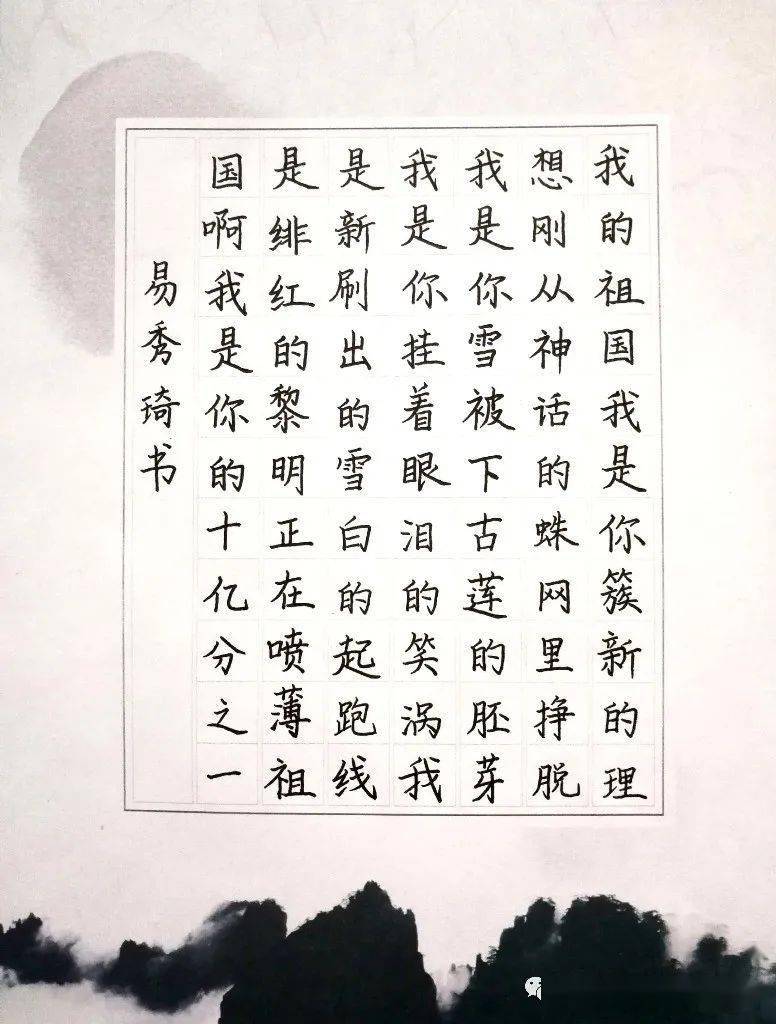 我的祖国我是你簇新的理
想刚从神话的蛛网里挣脱
我是你雪被下古莲的胚芽
我是你挂着眼泪的笑涡我
是新刷出的雪白的起跑线
是绯红的黎明正在喷薄祖
国啊我是你的十亿分之一
易秀琦书